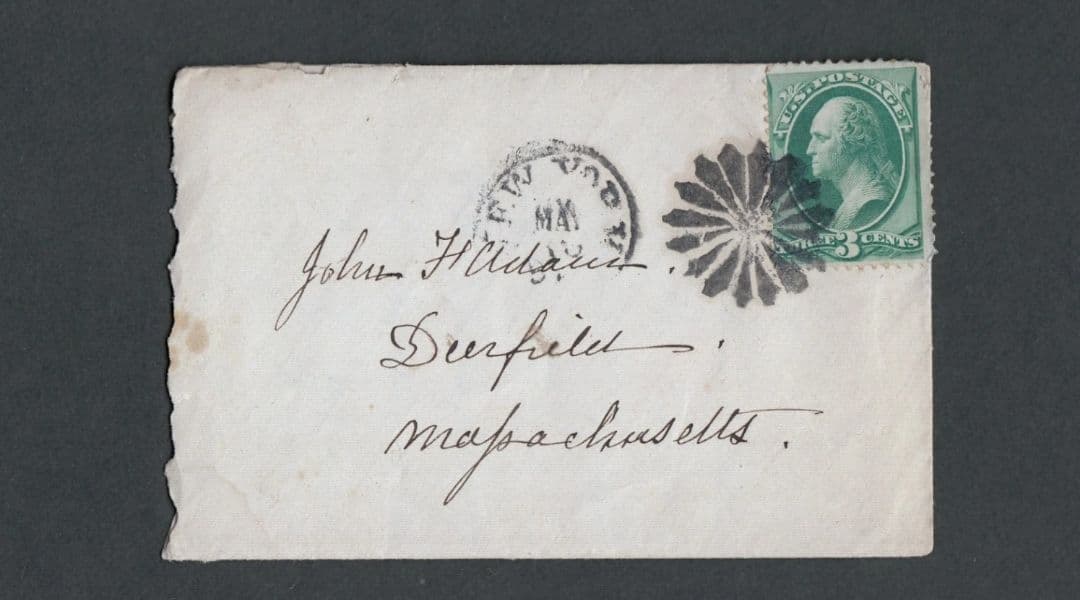 U.S. POSTAGE
THREE 3 CENTS
NEW YORK
MAY
John H Adams.
Deerfield.
Massachusetts.